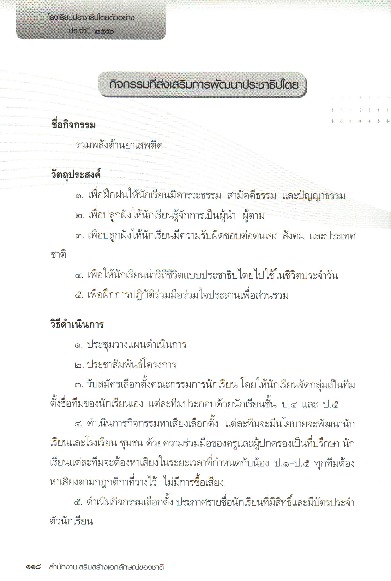 โรงเรียนประชาธิปไตยตัวอย่าง
กิจกรรมที่ส่งเสริมการพัฒนาประชาธิปไตย
ชื่อกิจกรรม
รวมพลังต้านยาเสพติด
วัตถุประสงค์
๑. เพื่อฝึกฝนให้นักเรียนมีคารวะธรรม สามัคคีธรรม และปัญญาธรรม
๒. เพื่อปลูกฝังให้นักเรียนรู้จักการเป็นผู้นำ ผู้ตาม
๓. เพื่อปลูกฝังให้นักเรียนมีความรับผิดชอบต่อตนเอง สังคม และประเทศ
ชาติ
๔. เพื่อให้นักเรียนนำวิถีชีวิตแบบประชาธิปไตยไปใช้ในชีวิตประจำวัน
๕. เพื่อฝึกการปฏิบัติร่วมมือร่วมใจประสานเพื่อส่วนรวม
วิธีดำเนินการ
๑. ประชุมวางแผนดำเนินการ
๒. ประชาสัมพันธ์โครงการ
๓. รับสมัครเลือกตั้งคณะกรรมการนักเรียน โดยให้นักเรียนจัดกลุ่มเป็นทีม
ตั้งชื่อทีมของนักเรียนเอง แต่ละทีมประกอบด้วยนักเรียนชั้น ป.๔ และ ป.๕
๔. ดำเนินการกิจกรรมหาเสียงเลือกตั้ง แต่ละทีมจะมีนโยบายจะพัฒนานัก
เรียนและโรงเรียน ชุมชน ด้วยความร่วมมือของครูและผู้ปกครองเป็นที่ปรึกษา นัก
เรียนแต่ละทีมจะต้องหาเสียงในระยะเวลาที่กำหนดกับน้อง ป.๑-ป.๕ ทุกทีมต้อง
หาเสียงตามกฎกติกาที่วางไว้ ไม่มีการซื้อเสียง
๕. ดำเนินกิจกรรมเลือกตั้ง ประกาศรายชื่อนักเรียนที่มีสิทธิ์และมีบัตรประจำ
ตัวนักเรียน
๑๑๘ สำนักงานเสริมสร้างเอกลักษณ์ของชาติ